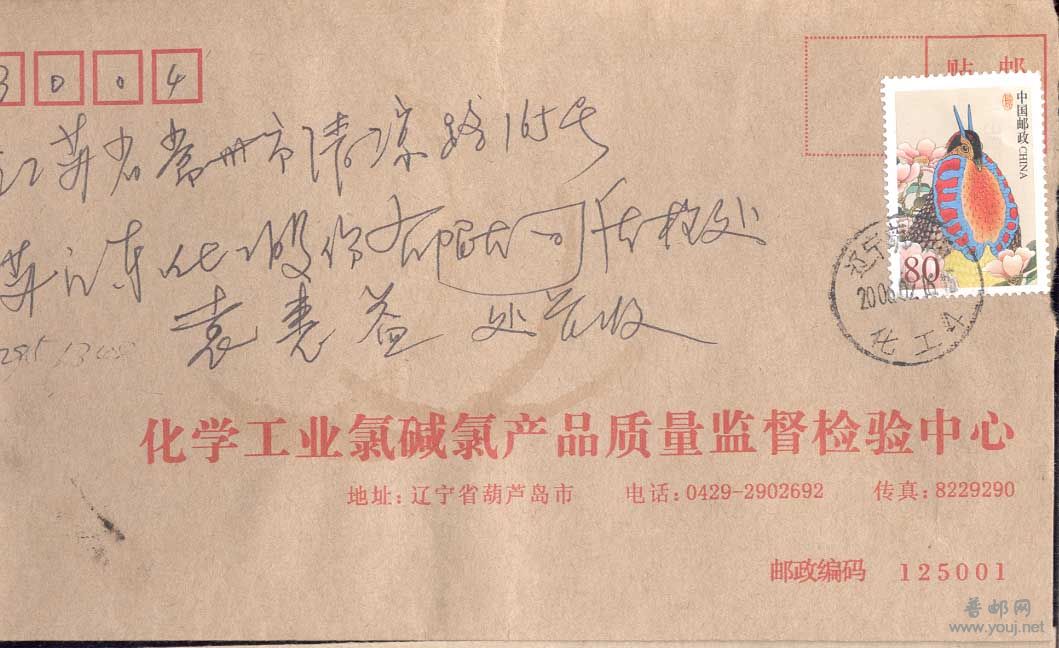 3004
贴 邮
中国邮政 CHINA
80
江苏省常州市清凉路165号
份有限公司质检处
袁惠益 处长收
辽宁
2006.02.1
化工
化学工业氯碱氯产品质量监督检验中心
地址:辽宁省葫芦岛市 电话:0429-2902692 传真:8229290
邮政编码 125001
普邮网
www.youj.net